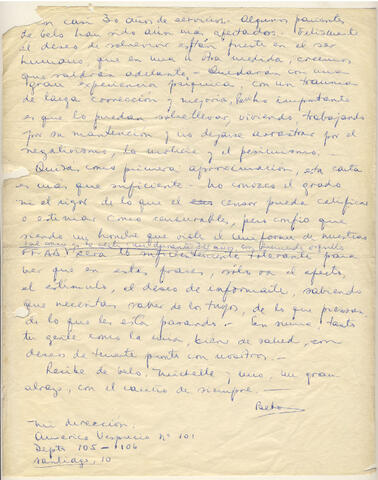 con casi 30 años de servicios. Algunos parientes
de Gelo han sido aún mas afectados. Felizmente
el deseo de sobrevivir es tan fuerte en el ser
humano, que en una u otra medida, creemos
que saldrán adelante. - Quedarán con una
gran experiencia psíquica, con un trauma
de larga corrección y mejoría, pero lo importante
es que lo puedan sobrellevar, viviendo, trabajando
por su mantención y no dejarse arrastrar por el
negativismo, la molicie y el pesimismo. -
Quizás como primera aproximación, esta carta
es mas que suficiente. - No conozco el grado
ni el rigor de lo que el censor pueda calificar
o estimar como censurable, pero confío que
siendo un hombre que viste el uniforme de nuestras
FF.AA. será lo suficientemente tolerante para
ver que en estas frases, solo va el afecto,
el estímulo, el deseo de informarte, sabiendo
que necesitas saber de los tuyos, de lo que piensan
de lo que les está pasando. - En suma, tanto
tu gente como la mia, bien de salud, con
deseos de tenerte pronto con nosotros. -
Recibe de Gelo, Michelle y mio, un gran
abrazo, con el cariño de siempre. -
Beto
Mi dirección.
Américo Vespucio Nº 101
Depto 105 - 106
Santiago, 10